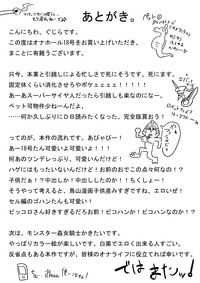 あとがき。
こんにちわ、ぐじらです。
この度はオナホール18号をお買い上げいただき、
まことに有難うございます。
只今、本業と引越しによる忙しさで死にそうです。死にます。
固定休くらい消化させやがれポケモンとかしてぇよ。
あースーパーサイヤ人だったら引越しも楽なのになー。
ペット可物件少ねーんだよ。
……何か久しぶりにDBを読みたくなった、完全版買おう！
ってのが、本作の流れです。あびゃびー！
あー18号たん可愛いよ可愛いよ！
何あのツンデレっぷり、可愛いんだけど！
ハゲにはもったいないんだけど！お前のおでこの点々何なの！？
子供だぁ！？中出しか！中出ししたのか！ちくしょー！
そうやって考えると、鳥山漫画子供産みすぎですね、エロいぜ！
セル編のゴハンたんも可愛い。
ピッコロさん好きすぎるだろお前！ピコハンか！ピコハンなのか！？
次は、モンスター姦女騎士かきたいです。
やっぱりカラー絵が楽しいです。白黒でエロく出来る人すごい。
反省点もある本作ですが、皆様のオナライフに役立てれば幸いです。
ではまたッ！